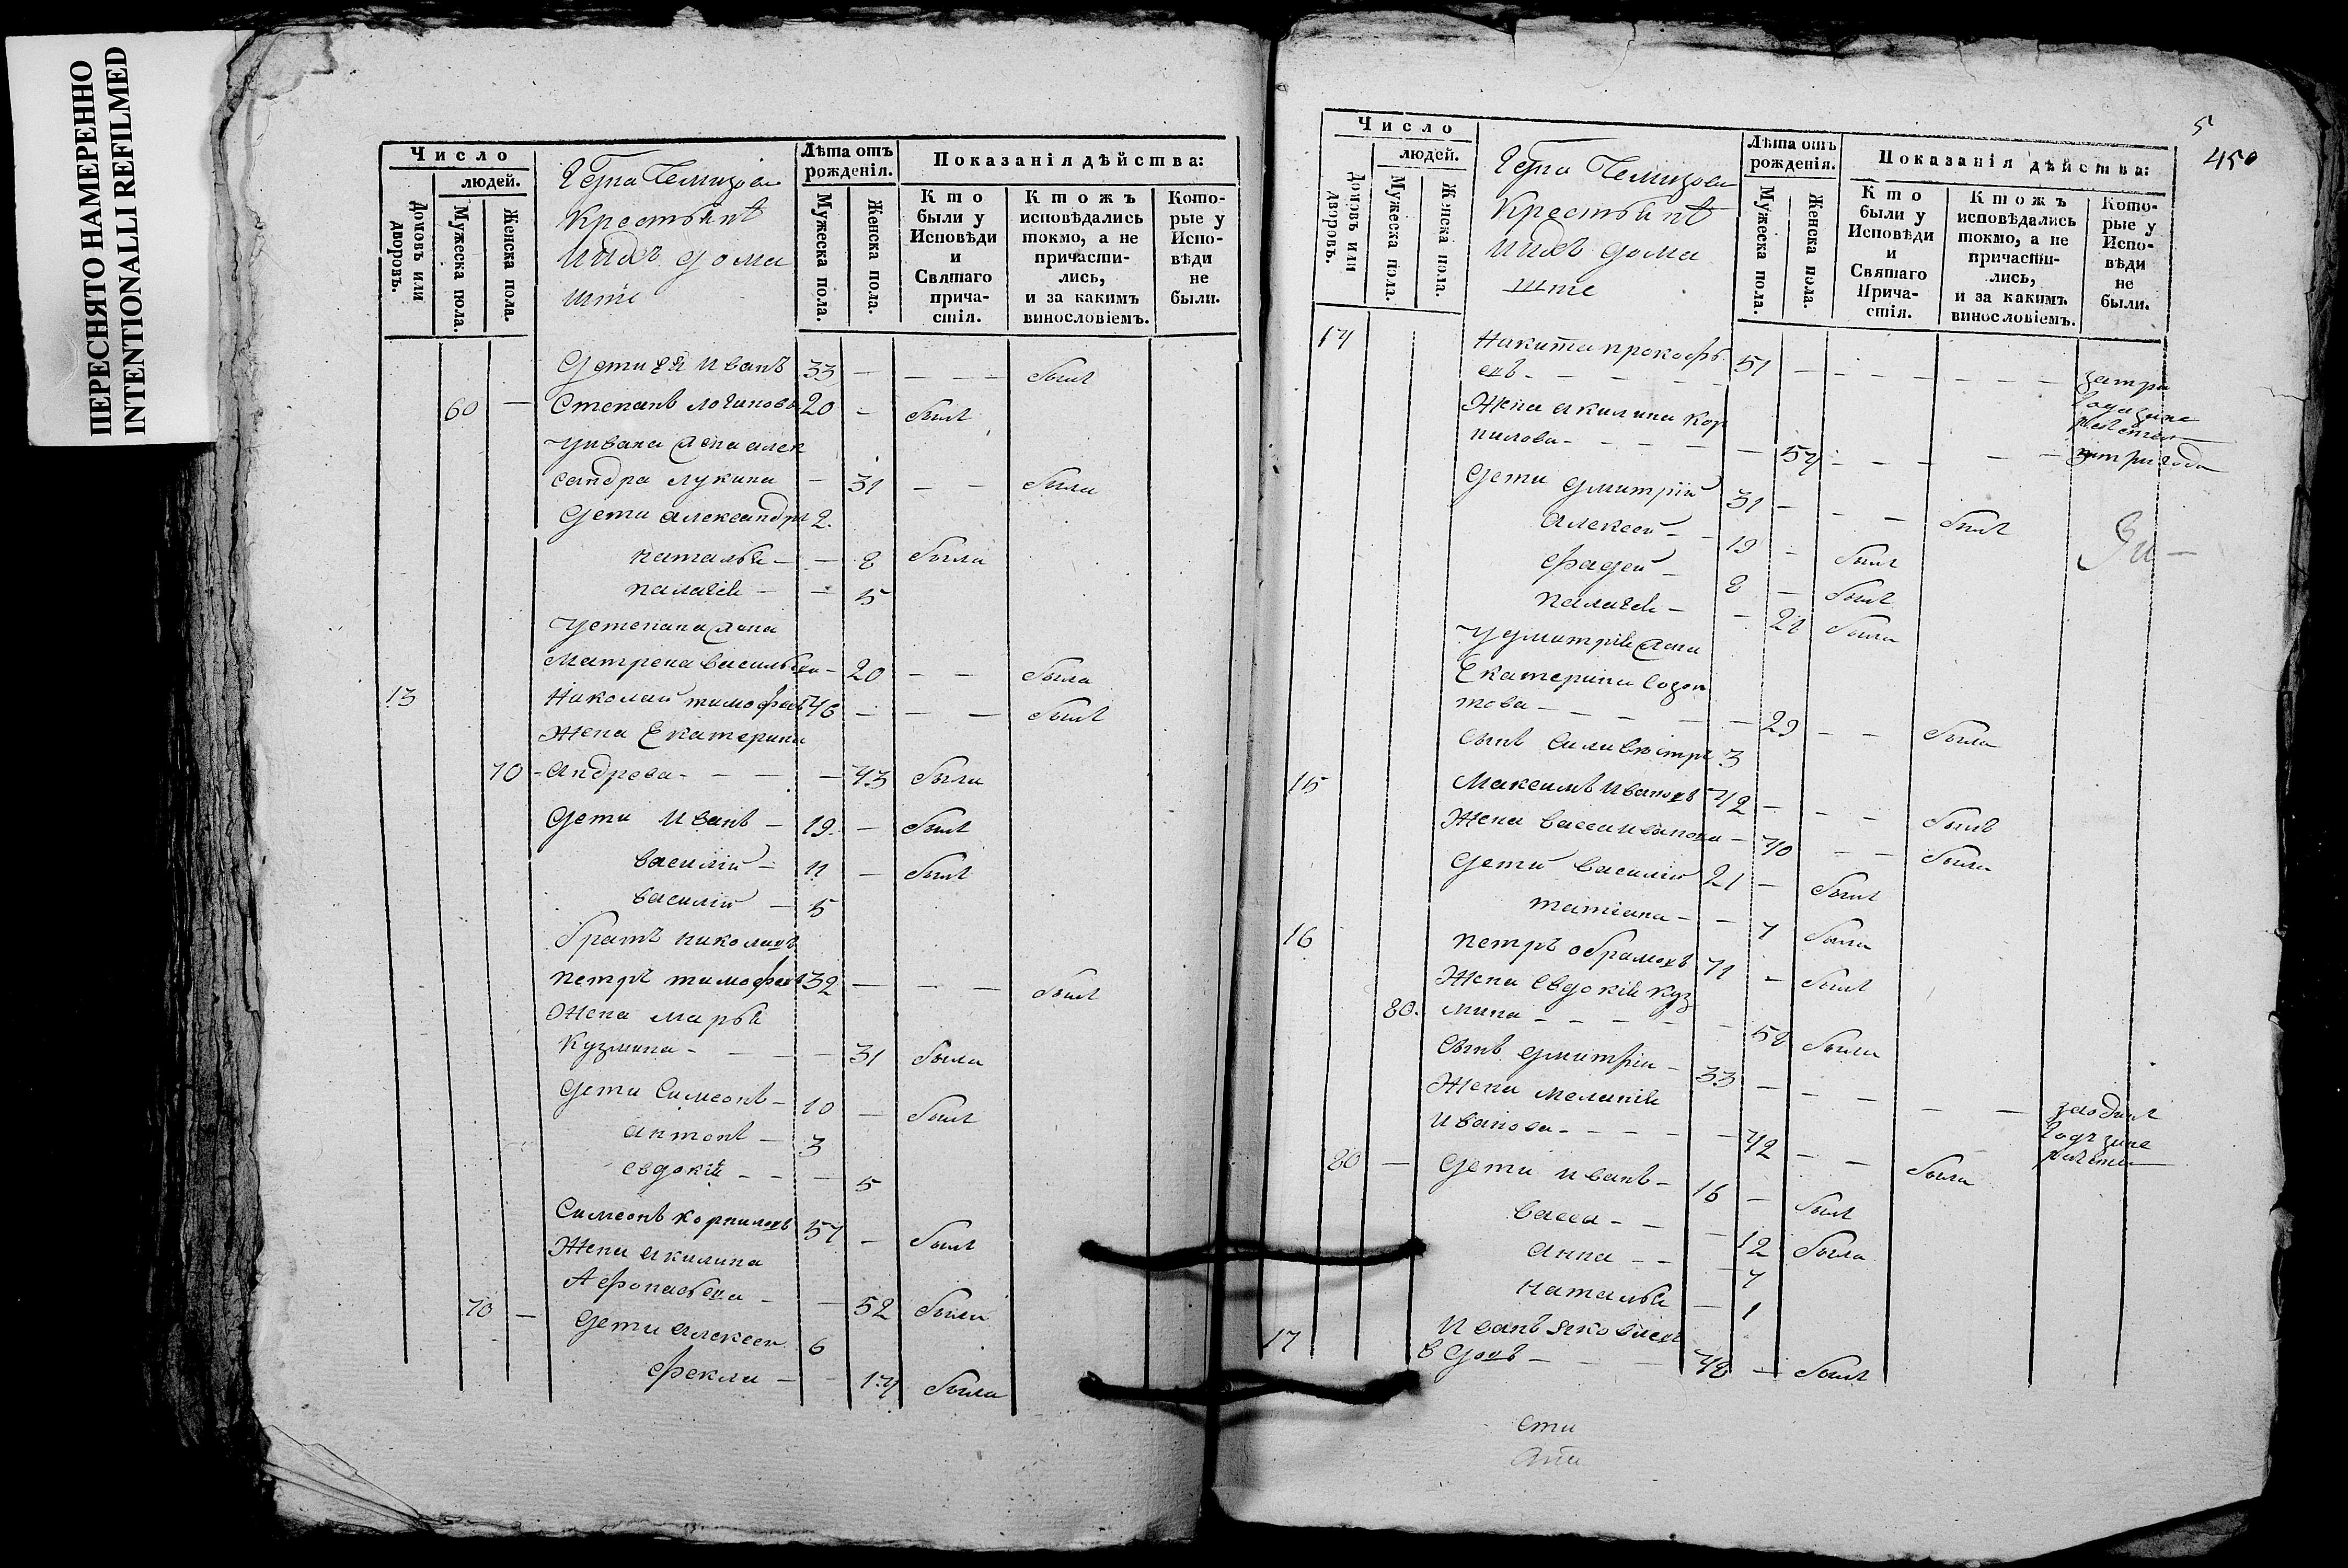 ПЕРЕСНЯТО НАМЕРЕННО
INTENTIONALLI REFILMED
Число
людей.
Домовъ или дворовъ.
Мужеска пола.
Женска пола.
Крестьяне
ихъ дома
шніе
Лѣта отъ рожденія.
Мужеска пола.
Женска пола.
Показанія дѣйства:
Кто были у Исповѣди и Святаго причастія.
Ктожъ исповѣдались токмо, а не причастились, и за какимъ винословіемъ.
Которые у Исповѣди не были.
Дети ея Иванъ 33 — — — былъ
60 — Степанъ Логиновы 20 — былъ
у Ивана жена Алек
сандра Лукина — 31 — — была
Дети Александръ 2
Наталья — — 8 была
Палагея — — 5
у Степана жена
Матрена Васильева — 20 — — была
13 Николай Тимофеевъ 46 — — — былъ
Жена Екатерина
70 - Андреева — — — 43 была
Дети Иванъ — 19 — былъ
Василій — 11 — былъ
Василій — 5
братъ Николаевъ
Петръ Тимофеевъ 32 — — — былъ
Жена Марья
Кузмина — — — 31 была
Дети Симеонъ — 10 — былъ
Антонъ — 3
Евдокія — — — 5
Симеонъ Корниловъ 57 — былъ
Жена Акилина
Афонасьева — — 52 была
70 — Дети Алексей 6
Фекла — — 14 была
5
450
Число
людей.
Домовъ или дворовъ.
Мужеска пола.
Женска пола.
Крестьяне
ихъ дома
шніе
Лѣта отъ рожденія.
Мужеска пола.
Женска пола.
Показанія дѣйства:
Кто были у Исповѣди и Святаго Причастія.
Ктожъ исповѣдались токмо, а не причастились, и за какимъ винословіемъ.
Которые у Исповѣди не были.
14 Никита Прокофь
евъ — — — — 51 — — — — — — за три
года
Жена Акилина Кор
нилова — — — — — 54 — — — — — три года
Дети Дмитрій 31 — — — былъ
Алексей — — 19 — былъ
Фадей — 8 — былъ
Палагея — — 22 была
у Дмитрія жена
Екатерина Созон
това — — — — — 29 — — была
сынъ Силивестръ 3
15 Максимъ Ивановъ 42 — — — былъ
Жена Васса Иванова — 40 — — была
Дети Василій 21 — былъ
Татіана — — 7 была
16 Петръ Обрамовъ 71 — былъ
Жена Евдокія Куз
80. мина — — — — — 58 была
сынъ Дмитрій — 33 — — — — — за одинъ
Жена Меланія
Иванова — — — — — 42 — — была
80 — Дети Иванъ — 16 — былъ
Васса — — — 12 была
Анна — — 7
Наталья — 1
17 Иванъ Яковлевъ
вдовъ — — — 48 — былъ